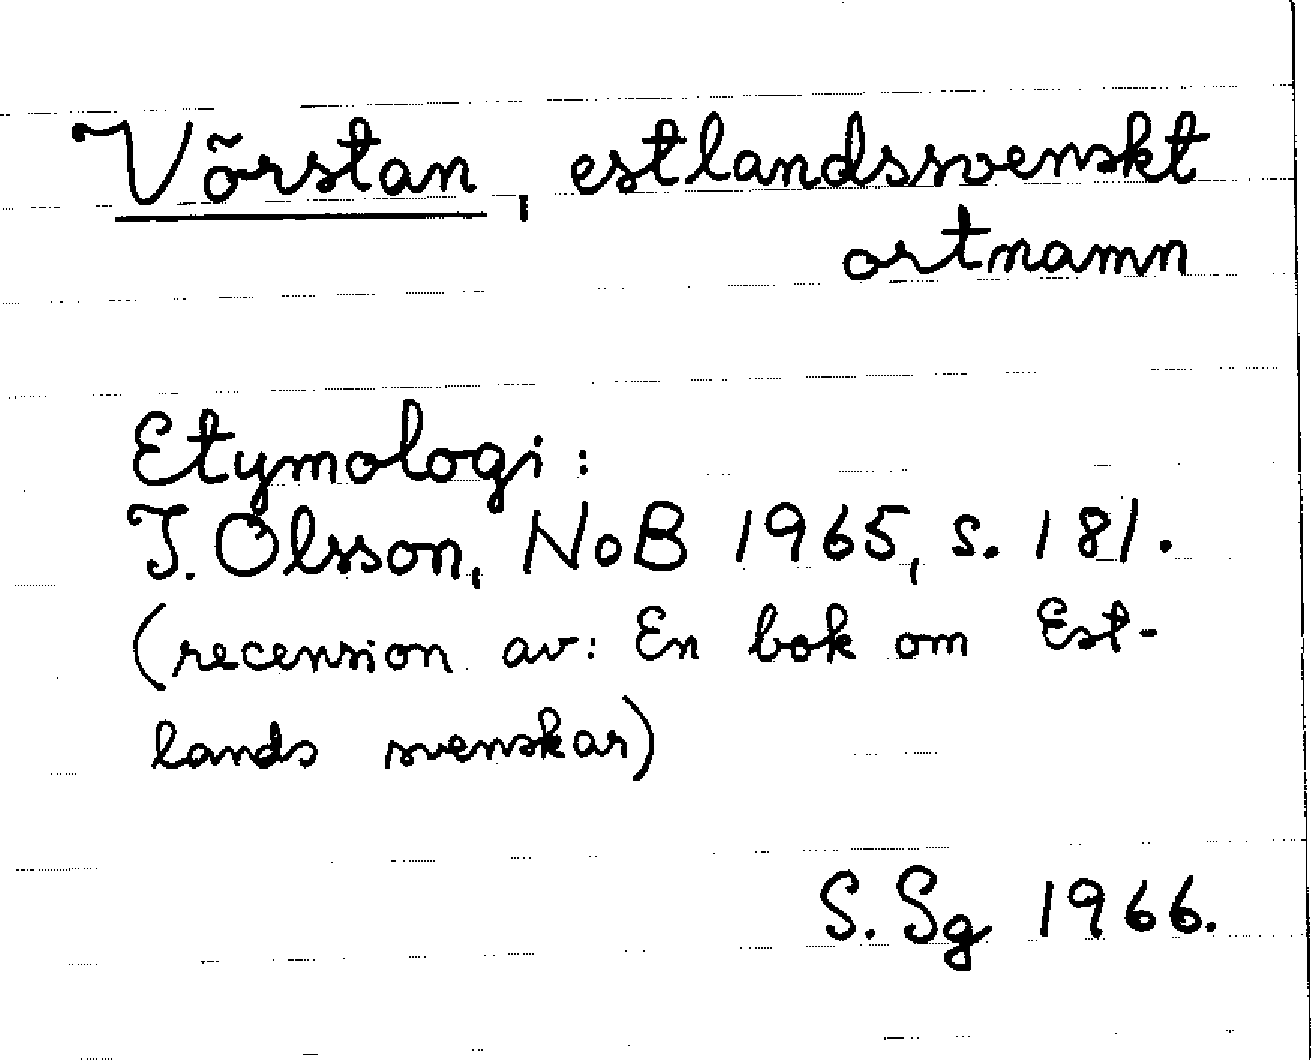 Võrstan, estlandssvenskt
ortnamn
Etymologi:
I. Olsson, NoB 1965, s. 181.
(recension av: En bok om Est-
lands svenskar)
S. Sg 1966.